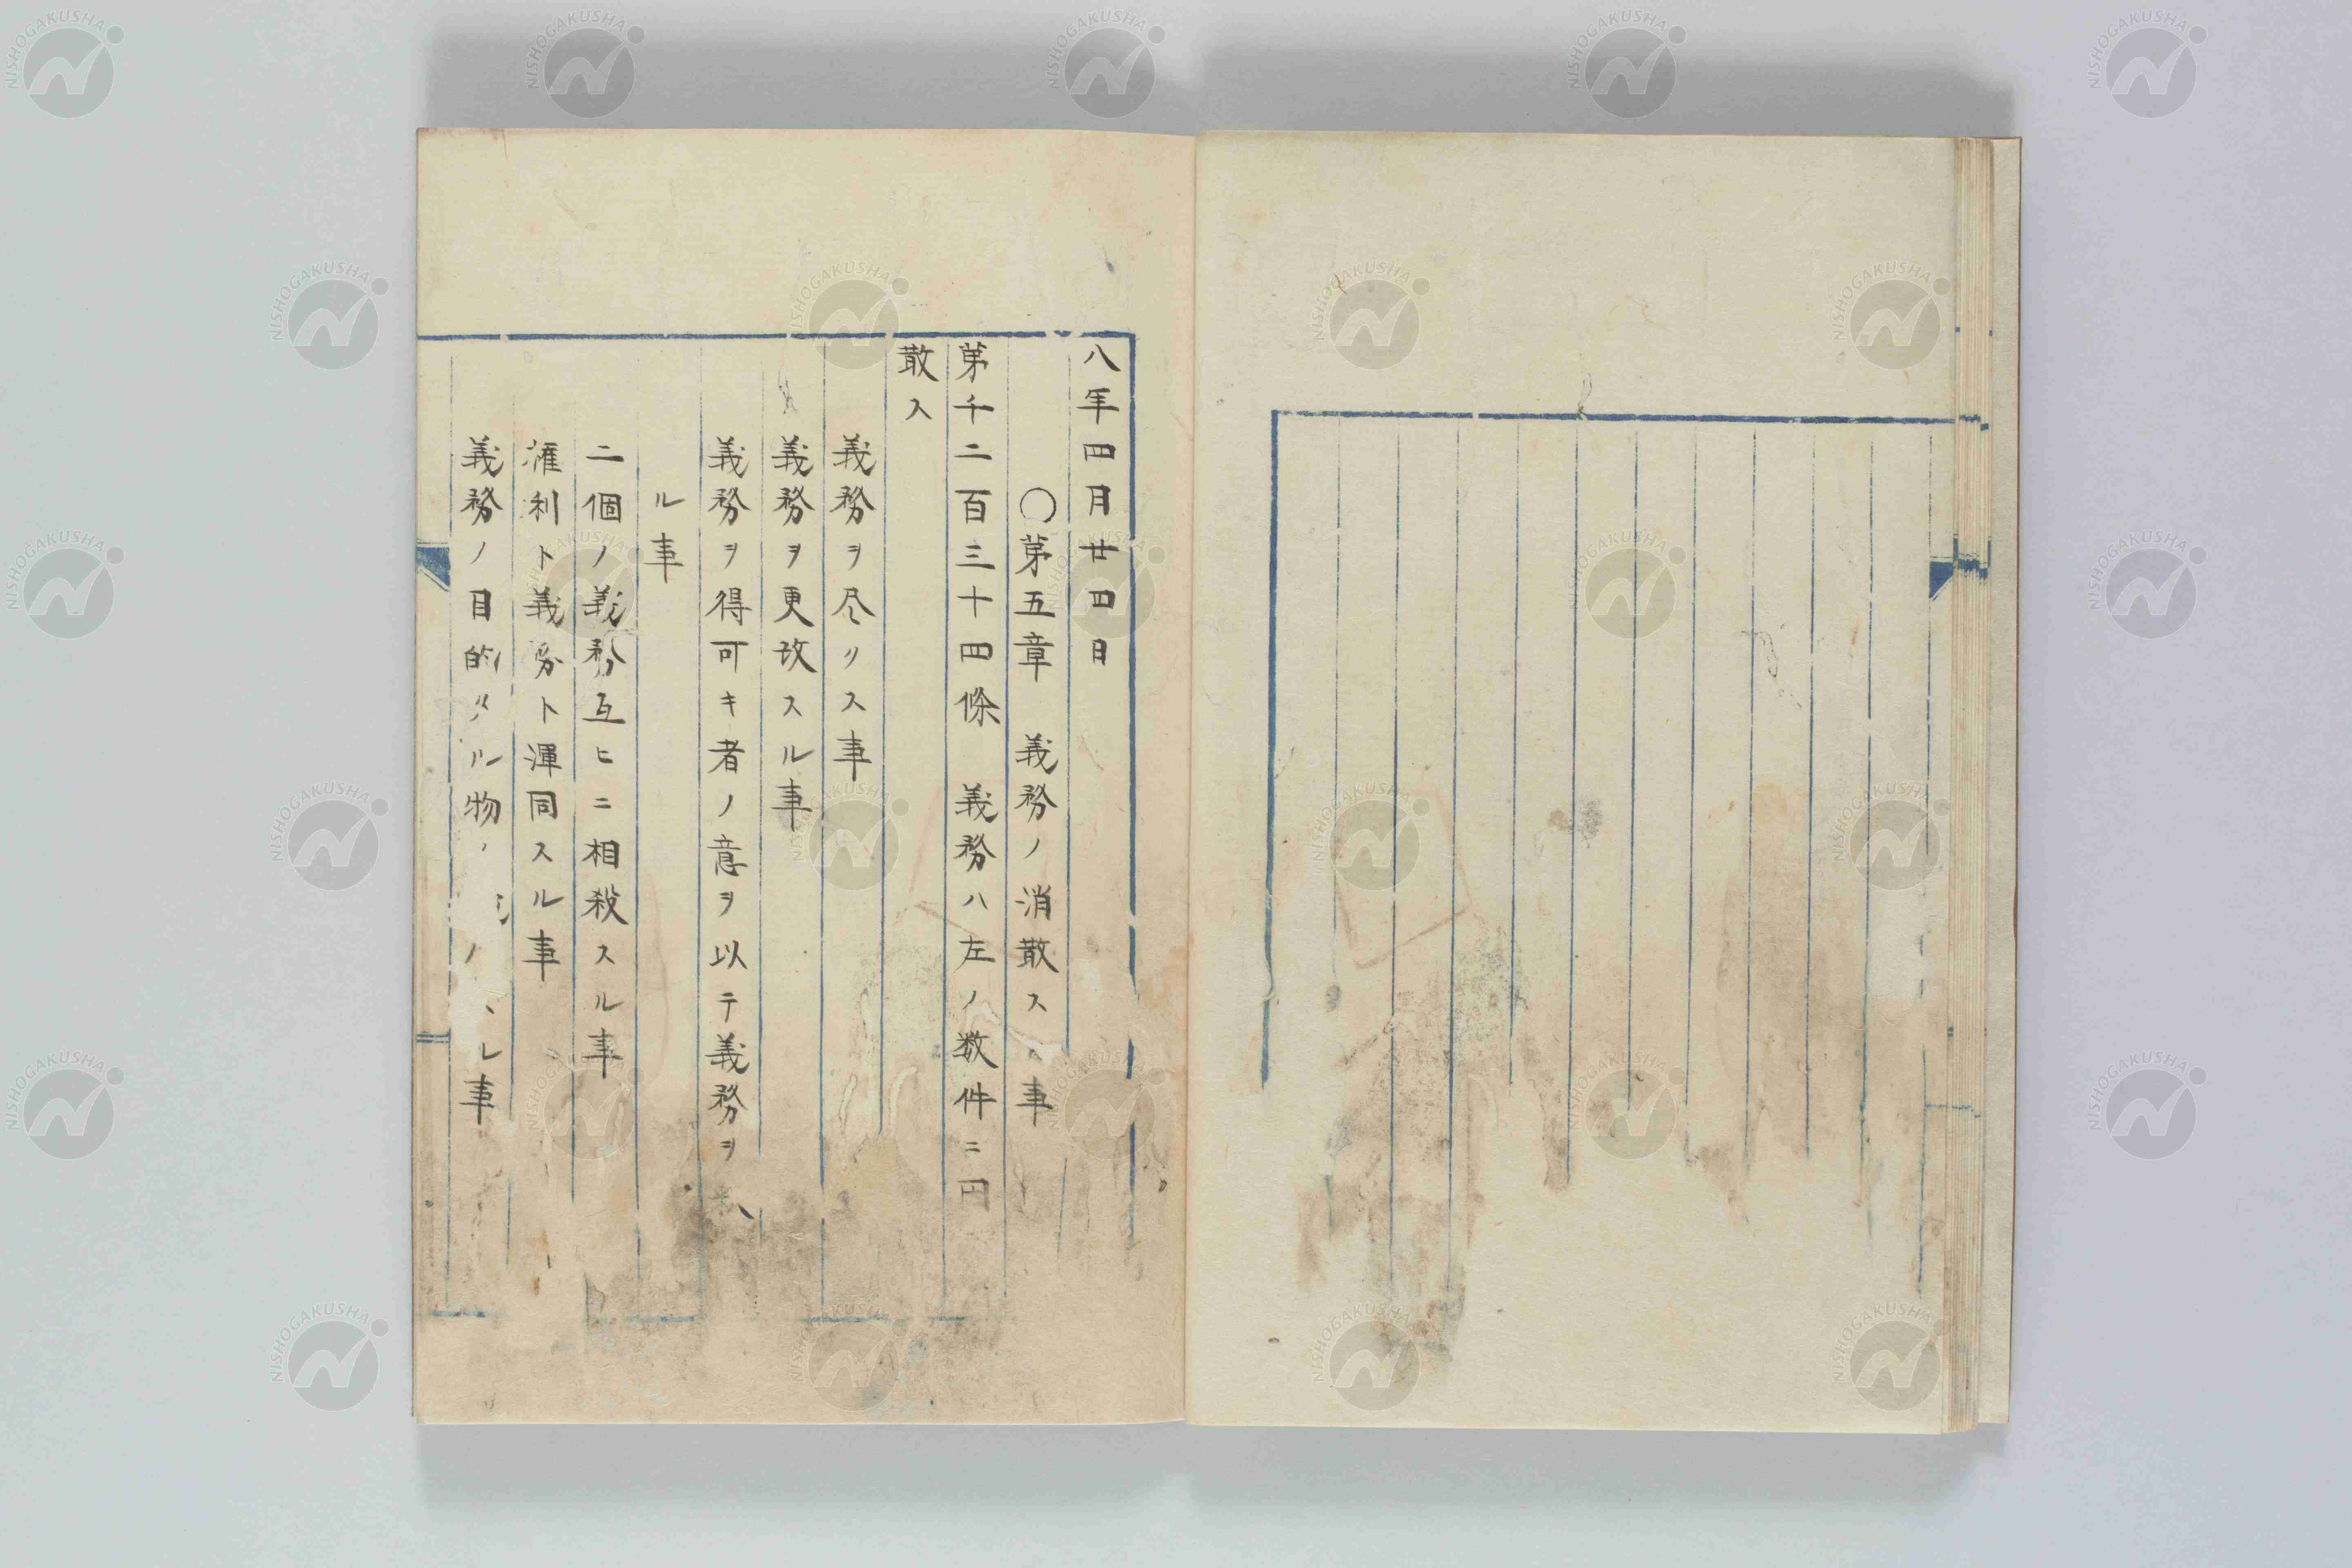 八年四月廿四日
〇第五章 義務ノ消散ス 事
第千二百三十四條 義務ハ左ノ数件ニ因
散ス
義務ヲ尽リス事
義務ヲ更改スル事
義務ヲ得可キ者ノ意ヲ以テ義務ヲ
ル事
二個ノ義務互ヒニ相殺スル事
権利ト義務ト渾同スル事
義務ノ目的タル物ノ 事
NISHOGAKUSHA